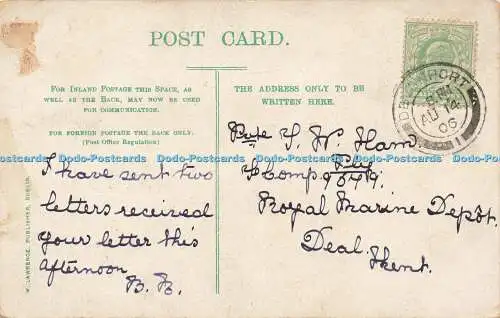 POST CARD.
FOR INLAND POSTAGE THIS SPACE, AS
WELL AS THE BACK, MAY NOW BE USED
FOR COMMUNICATION.
FOR FOREIGN POSTAGE THE BACK ONLY.
(Post Office Regulation)
I have sent two
letters received
your letter this
afternoon
B. H.
THE ADDRESS ONLY TO BE
WRITTEN HERE.
Pvte S. W. Ham.
Ply
I Comp
Royal Marine Depôt.
Deal.
Kent.
DEVONPORT
AU 14
06
LAWRENCE, PUBLISHER, DUBLIN.
Dodo-Postcards Dodo-Postcards Dodo-Postcards Dodo-Postcards Dodo-Postcards